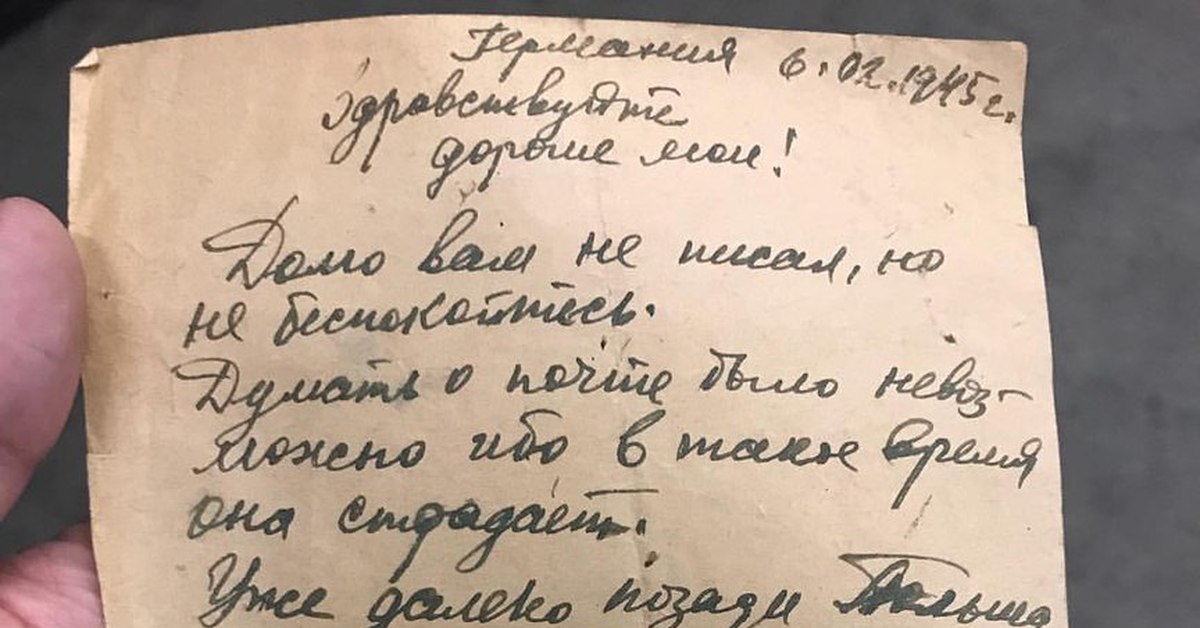 Германия 6.02.1945г.
Здравствуйте
дорогие мои!
Долго вам не писал, но
не беспокойтесь.
Думать о почте было невоз-
можно ибо в такое время
она страдает.
Уже далеко позади Польша